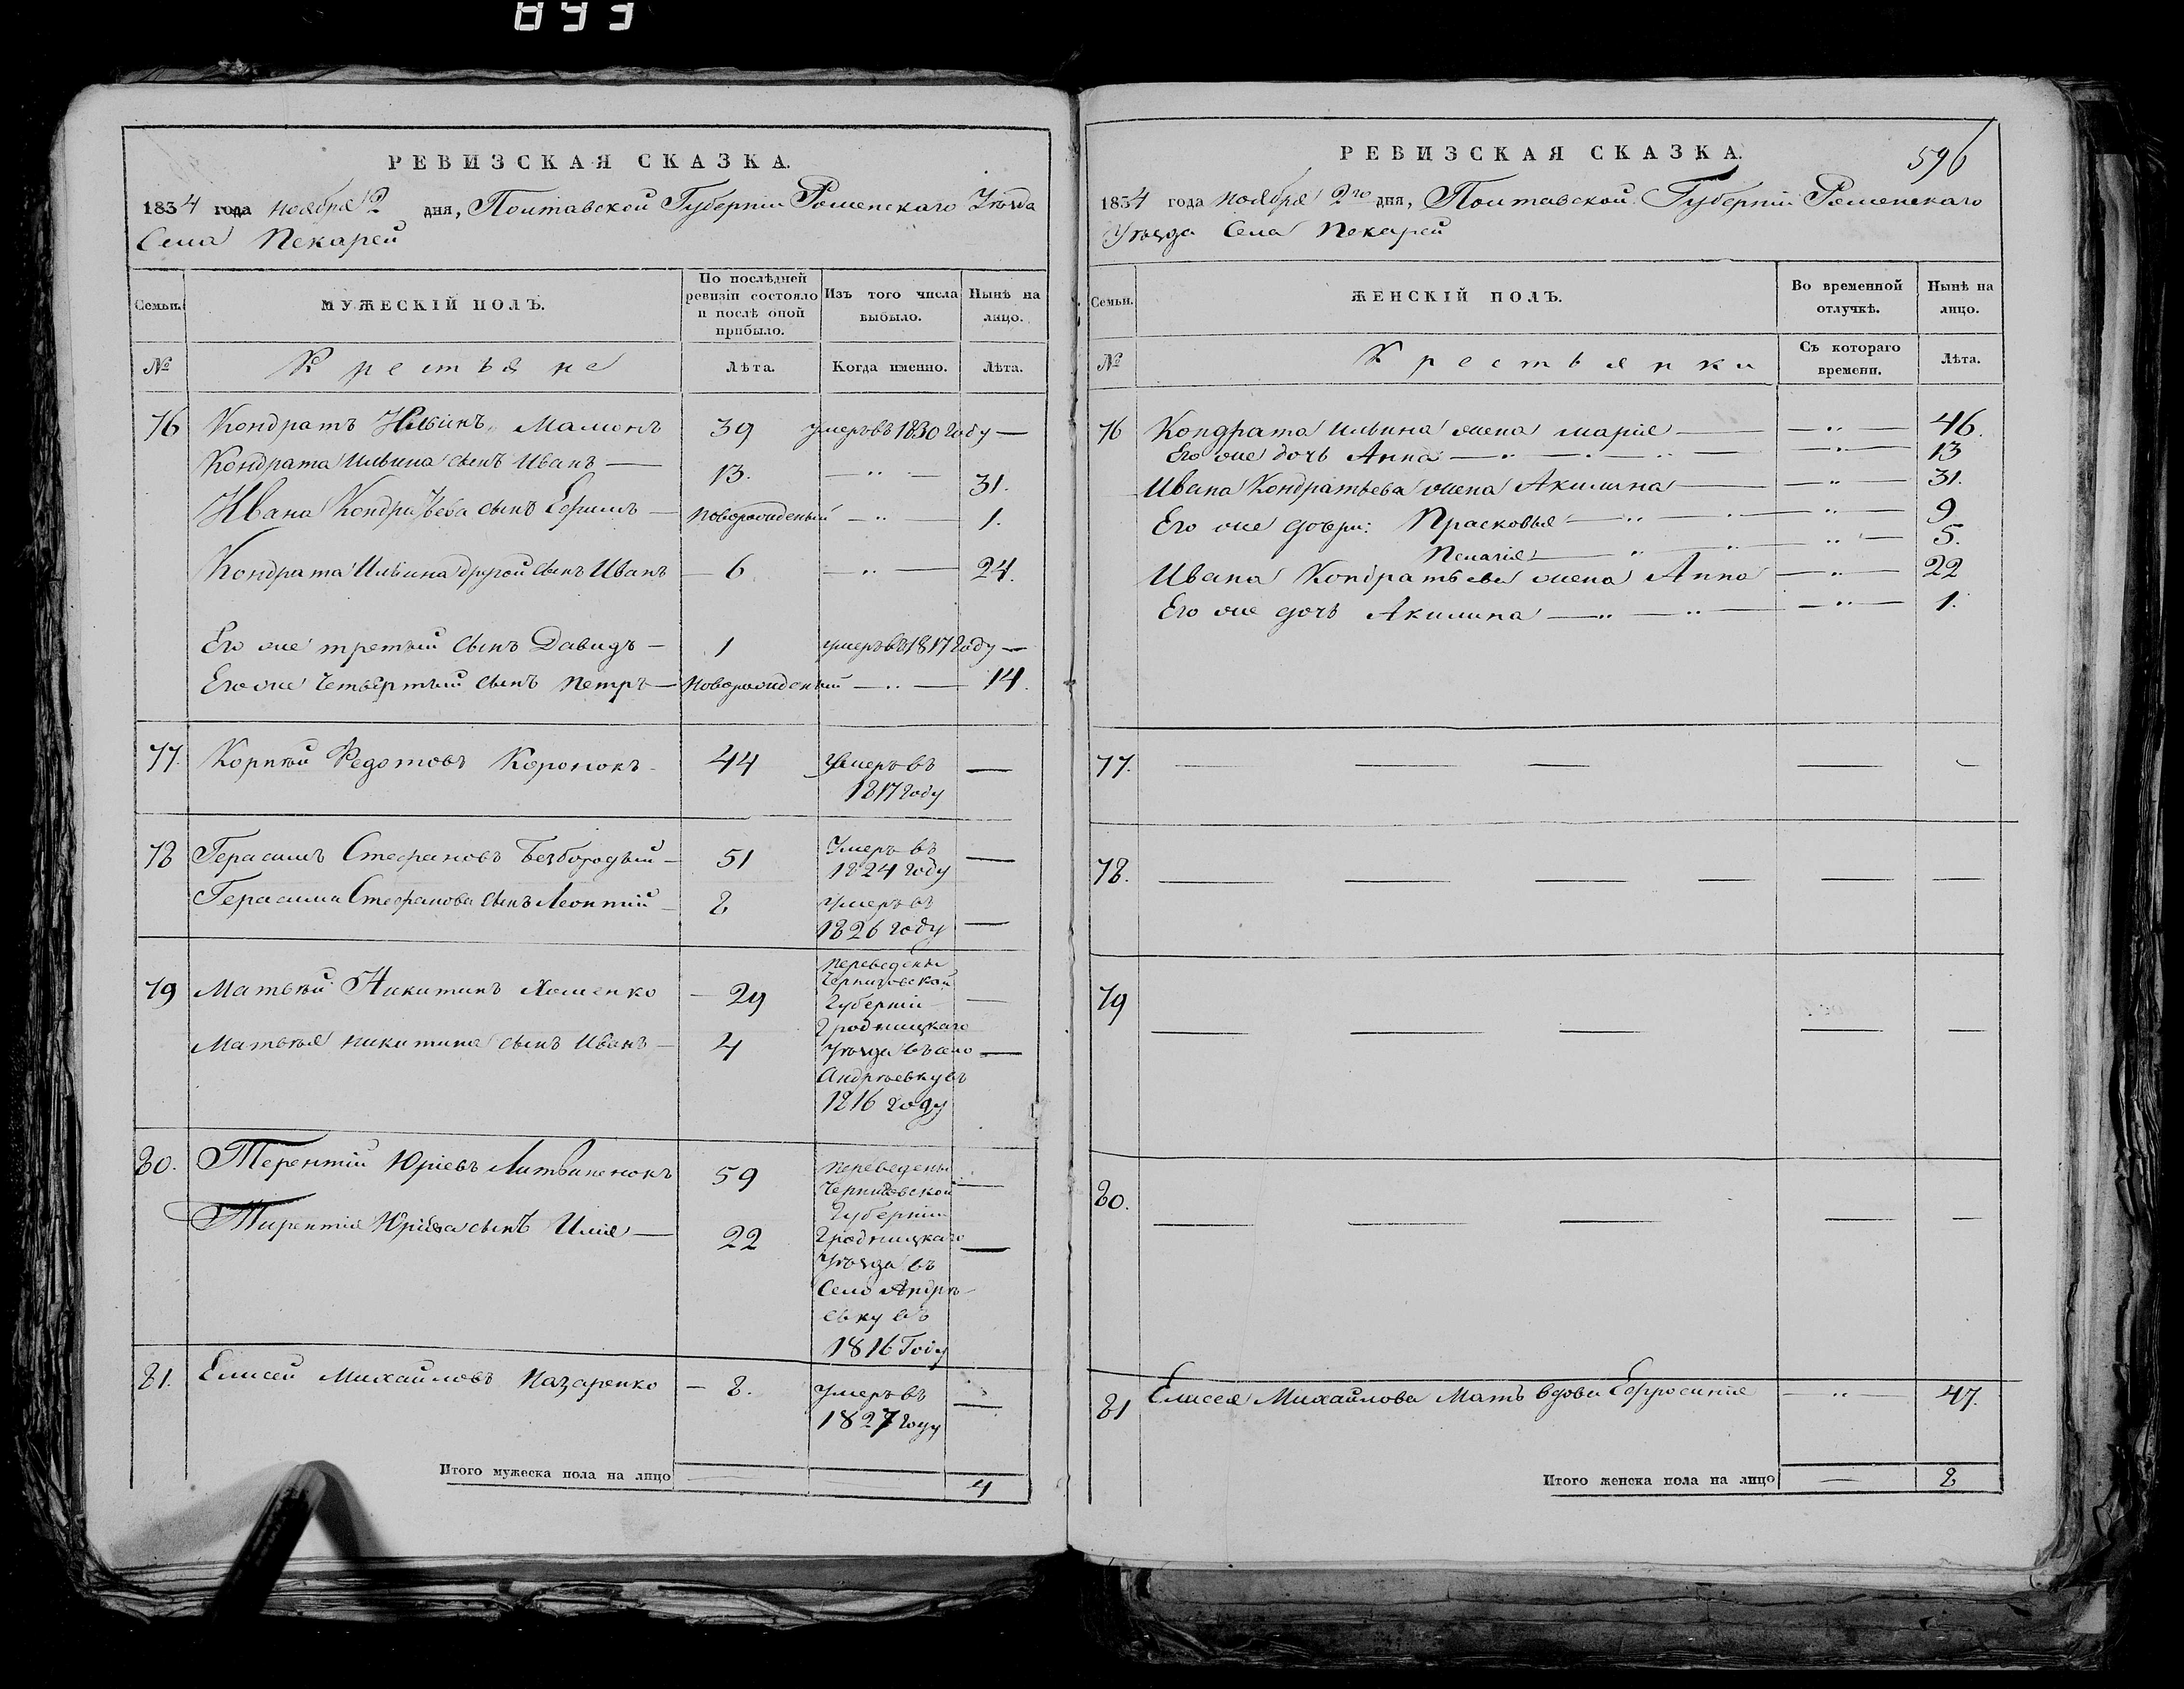 893
РЕВИЗСКАЯ СКАЗКА.
1834 года ноября 2 дня, Полтавской Губернии Роменскаго Уѣзда
Села Пекарей
Семьи.
МУЖЕСКІЙ ПОЛЪ.
По послѣдней ревизіи состояло и послѣ оной прибыло.
Изъ того числа выбыло.
Нынѣ на лицо.
№ Крестьяне Лѣта. Когда именно. Лѣта.
76 Кондратъ Ильинъ Мамонъ 39 умеръ въ 1830 году —
Кондрата Ильина сынъ Иванъ — 13. — " — 31.
Ивана Кондратьева сынъ Ефимъ — новорожденый — " — 1.
Кондрата Ильина другой сынъ Иванъ — 6 — " — 24.
Его же третьий сынъ Давидъ — 1 умеръ въ 1817 году —
Его же четвертый сынъ Петръ — новорожденый — " — 14.
77. Корнѣй Федотовъ Коронокъ 44 Умеръ въ —
1817 году
78 Герасимъ Стефановъ Безбородый — 51 Умеръ въ —
1824 году
Герасима Стефанова сынъ Леонтий — 8 умеръ въ
1826 году —
79 Матвѣй Никитинъ Хоменко — 29 переведены
Черниговской
Губерніи —
Городницкаго
Матвѣя Никитина сынъ Иванъ — 4 Уѣзда въ село —
Андрѣевку въ
1816 году
80. Терентій Юріевъ Литвиненокъ 59 переведены
Черниговской —
Губерніи
Тирентія Юріева сынъ Илія — 22 Городницкаго —
Уѣзда въ
Село Андрѣ-
евку въ
1816 Году
81. Елисей Михайловъ Назаренко — 8. Умеръ въ —
1827 году
Итого мужеска пола на лицо — — 4
РЕВИЗСКАЯ СКАЗКА. 596
1834 года ноября 2го дня, Полтавской Губерніи Роменскаго
Уѣзда Села Пекарей
Семьи.
ЖЕНСКІЙ ПОЛЪ.
Во временной отлучкѣ.
Нынѣ на лицо.
№ Крестьянки Съ котораго времени. Лѣта.
76 Кондрата Ильина жена Марія — — " — 46.
Его же дочь Анна — " — " — — " — 13
Ивана Кондратьева жена Акилина — — " — 31.
Его же дочери: Прасковья — " — — " — 9
Пелагія — " — " — — " — 5.
Ивана Кондратьева жена Анна — " — 22
Его же дочь Акилина — " — " — — " — 1.
77. — — — — —
78. — — — — — —
79 — — — — —
80. — — — — —
81 Елисея Михайлова Мать вдова Ефросинія — " — 47.
Итого женска пола на лицо — 8